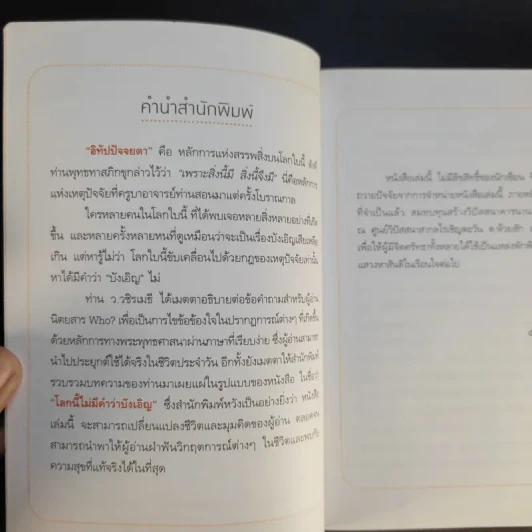 คำนำสำนักพิมพ์
"อิทัปปัจจยตา" คือ หลักการแห่งสรรพสิ่งบนโลกใบนี้ ดังที่
ท่านพุทธทาสภิกขุกล่าวไว้ว่า "เพราะสิ่งนี้มี สิ่งนี้จึงมี" นี่คือหลักการ
แห่งเหตุปัจจัยที่ครูบาอาจารย์ท่านสอนมาแต่ครั้งโบราณกาล
ใครหลายคนในโลกใบนี้ ที่ได้พบเจอหลายสิ่งหลายอย่างที่เกิด
ขึ้น และหลายครั้งหลายหนที่ดูเหมือนว่าจะเป็นเรื่องบังเอิญเสียเหลือ
เกิน แต่หารู้ไม่ว่า โลกใบนี้ขับเคลื่อนไปด้วยกฎของเหตุปัจจัยเท่านั้น
หาได้มีคำว่า "บังเอิญ" ไม่
ท่าน ว.วชิรเมธี ได้เมตตาอธิบายต่อข้อคำถามสำหรับผู้อ่าน
นิตยสาร Who? เพื่อเป็นการไขข้อข้องใจในปรากฏการณ์ต่างๆ ที่เกิดขึ้น
ด้วยหลักการทางพระพุทธศาสนาผ่านภาษาที่เรียบง่าย ซึ่งผู้อ่านสามารถ
นำไปประยุกต์ใช้ได้จริงในชีวิตประจำวัน อีกทั้งยังเมตตาให้สำนักพิมพ์
รวบรวมบทความของท่านมาเผยแผ่ในรูปแบบของหนังสือ ในชื่อว่า
"โลกนี้ไม่มีคำว่าบังเอิญ" ซึ่งสำนักพิมพ์หวังเป็นอย่างยิ่งว่า หนังสือ
เล่มนี้ จะสามารถเปลี่ยนแปลงชีวิตและมุมคิดของผู้อ่าน ตลอดจน
สามารถนำพาให้ผู้อ่านฝ่าฟันวิกฤตการณ์ต่างๆ ในชีวิตและพบกับ
ความสุขที่แท้จริงได้ในที่สุด
หนังสือเล่มนี้ ไม่มีลิขสิทธิ์ของนักเขียน
ถวายปัจจัยจากการจำหน่ายหนังสือเล่มนี้ ภายหลัง
ที่จำเป็นแล้ว สมทบทุนสร้างวิปัสสนาคาร
ณ ศูนย์วิปัสสนาสากลไร่เชิญตะวัน ต.ห้วยสัก
เพื่อให้ผู้มีจิตศรัทธาทั้งหลายได้ใช้เป็นแหล่งพักพิง
แสวงหาสันติในเรือนใจต่อไป